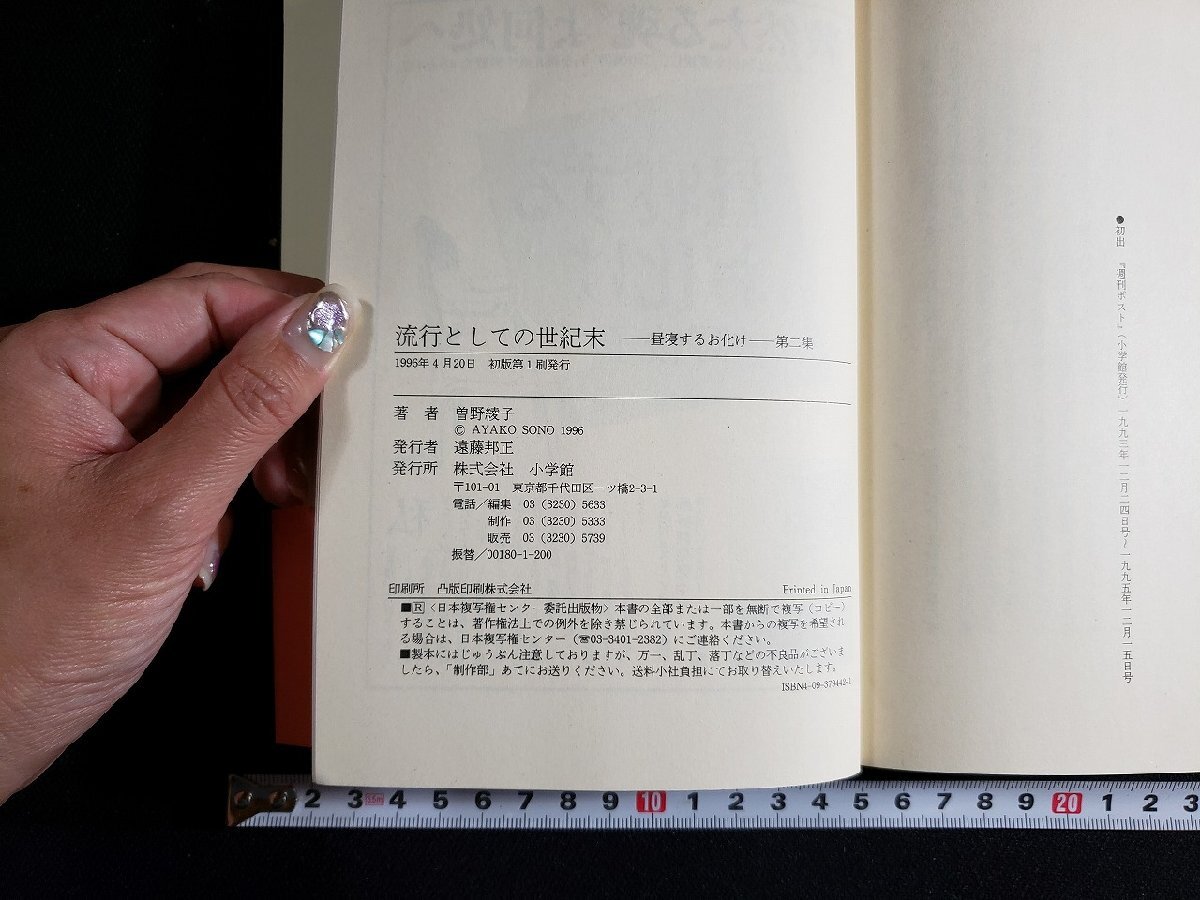 流行としての世紀末 ――昼寝するお化け――第二集
1996年4月20日 初版第1刷発行
著 者 曽野綾子
© AYAKO SONO 1996
発行者 遠藤邦正
発行所 株式会社 小学館
〒101-01 東京都千代田区一ツ橋2-3-1
電話/編集 03(3230)5633
制作 03(3230)5333
販売 03(3230)5739
振替/00180-1-200
印刷所 凸版印刷株式会社 Printed in Japan
■Ⓡ〈日本複写権センター委託出版物〉本書の全部または一部を無断で複写(コピー)
することは、著作権法上での例外を除き禁じられています。本書からの複写を希望され
る場合は、日本複写権センター(☎03-3401-2382)にご連絡ください。
■製本にはじゅうぶん注意しておりますが、万一、乱丁、落丁などの不良品がございま
したら、「制作部」あてにお送りください。送料小社負担にてお取り替えいたします。
ISBN4-09-379442-1
●初出 『週刊ポスト』(小学館発行) 一九九三年一二月二四日号~一九九五年一二月一五日号
2 3 5.5m 4 5 6 7 8 9 10 1 2 3 4 5 6 7 8 9 20 1 2 3